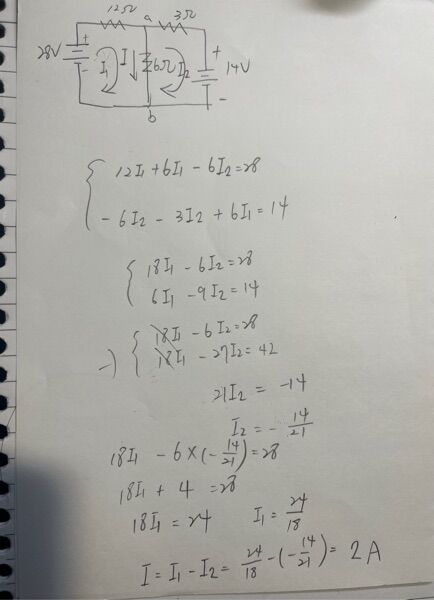 12Ω a 3Ω
28V + - I₁ I↓ 6Ω I₂ + - 14V
b
{ 12I₁ + 6I₁ - 6I₂ = 28
- 6I₂ - 3I₂ + 6I₁ = 14
{ 18I₁ - 6I₂ = 28
6I₁ - 9I₂ = 14
-) { 18I₁ - 6I₂ = 28
18I₁ - 27I₂ = 42
21I₂ = -14
I₂ = - 14/21
18I₁ - 6 × (- 14/21) = 28
18I₁ + 4 = 28
18I₁ = 24 I₁ = 24/18
I = I₁ - I₂ = 24/18 - (- 14/21) = 2A